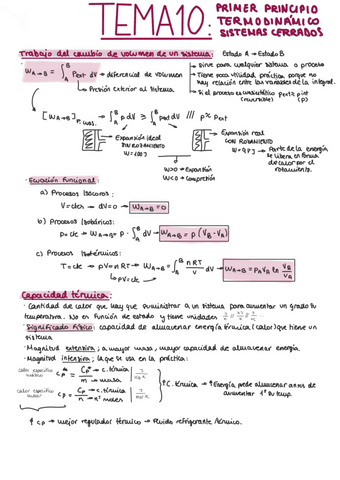 TEMA 10: PRIMER PRINCIPIO
TERMODINÁMICO
SISTEMAS CERRADOS
Trabajo del cambio de volumen de un sistema: Estado A → Estado B
W A→B = ∫ A B Pext dV → diferencial de volumen
→ Presión exterior al sistema
→ Sirve para cualquier sistema o proceso
→ Tiene poca utilidad práctica, porque no
hay relación entre las variables de la integral.
→ Si el proceso es cuasiestático Pext ≈ Pint
(reversible) (P)
[W A→B] P. cuas. = ∫ A B p dV ≥ ∫ A B Pext dV /// P ≥ Pext
→ Expansión ideal
SIN ROZAMIENTO
W = 100 J
→ Expansión real
CON ROZAMIENTO
W = 90 J → Parte de la energía
se libera en forma
de calor por el
rozamiento.
W>0 → Expansión
W<0 → Compresión
· Ecuación Funcional:
a) Procesos Isocoros:
V = cte → dV = 0 → W A→B = 0
b) Procesos Isobáricos:
p = cte → W A→B = P · ∫ A B dV → W A→B = P (VB - VA)
c) Procesos Isotérmicos:
T = cte → pV = nRT → W A→B = ∫ A B nRT/V dV → W A→B = PA VA ln VB/VA
→ pV = cte
Capacidad térmica:
· Cantidad de calor que hay que suministrar a un sistema para aumentar un grado tu
temperatura. No es función de estado y tiene unidades
· Significado Físico: capacidad de almacenar energía térmica (calor) que tiene un
sistema.
· Magnitud extensiva; a mayor masa, mayor capacidad de almacenar energía.
· Magnitud intensiva; la que se usa en la práctica:
calor específico
másico cp = Cp → c. térmica / m → masa
calor específico
molar cp = Cp → c. térmica / n → nº moles
↑ C. térmica → ↑ Energía puede almacenar antes de
aumentar 1° su temp.
↑ cp → mejor regulador térmico → Fluido refrigerante térmico.